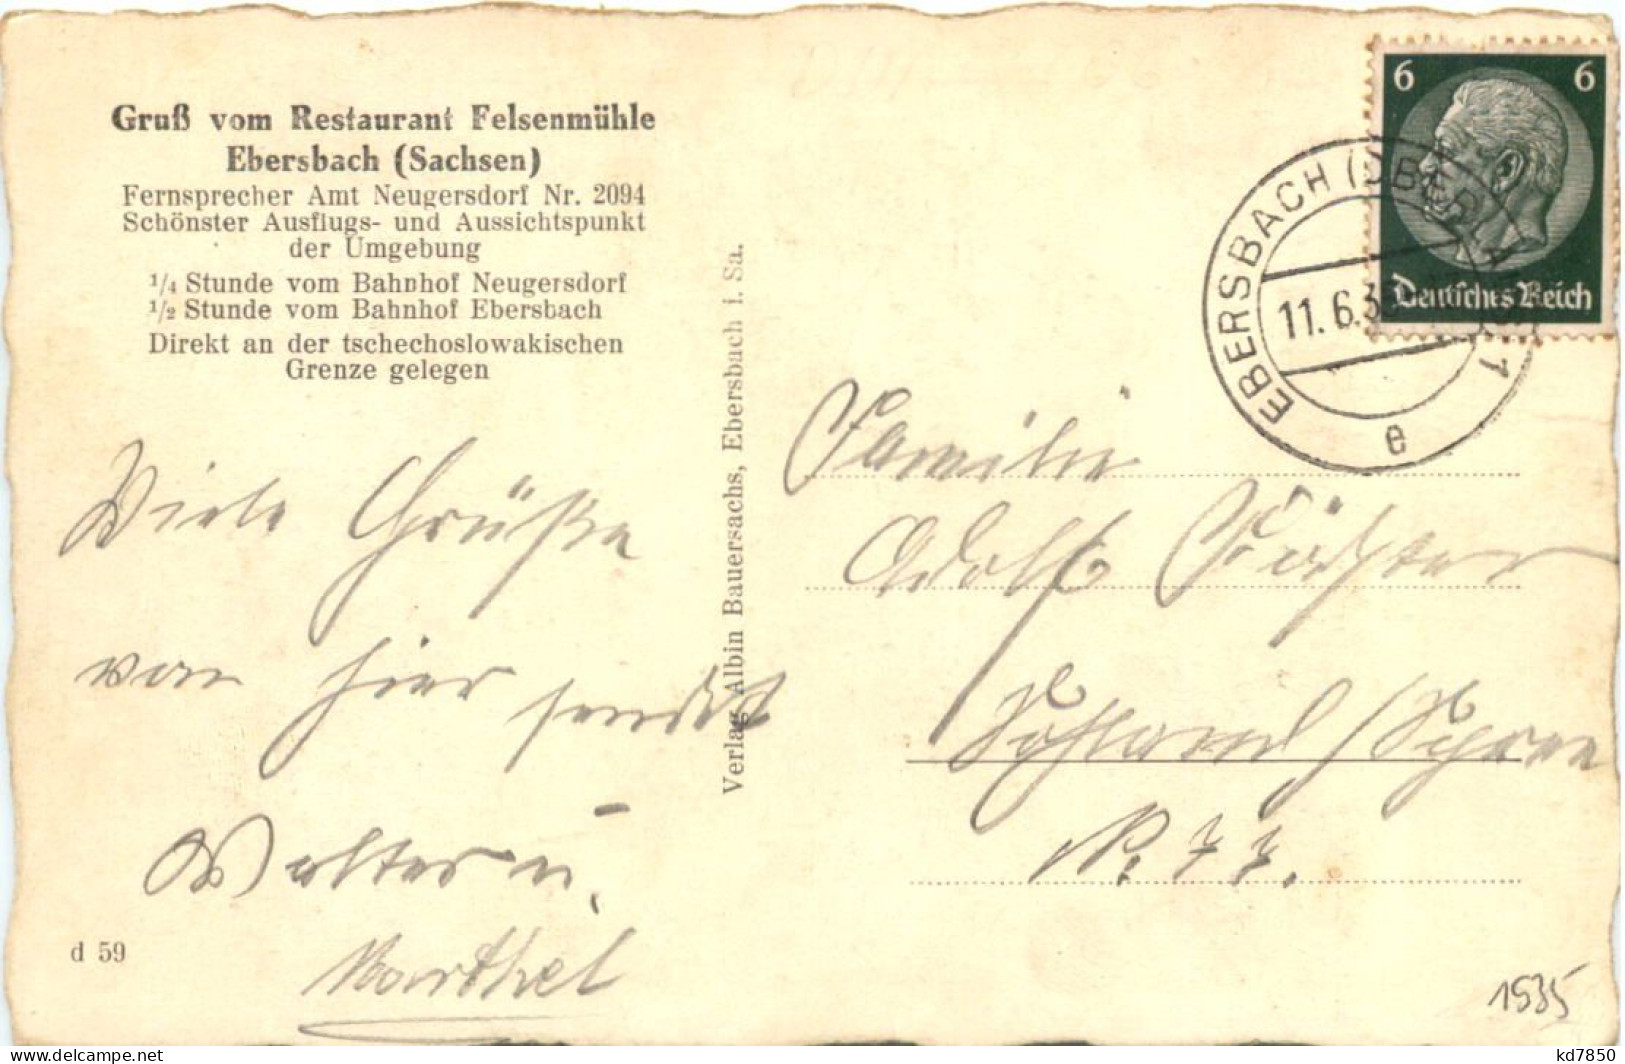 Gruß vom Restaurant Felsenmühle
Ebersbach (Sachsen)
Fernsprecher Amt Neugersdorf Nr. 2094
Schönster Ausflugs- und Aussichtspunkt
der Umgebung
1/4 Stunde vom Bahnhof Neugersdorf
1/2 Stunde vom Bahnhof Ebersbach
Direkt an der tschechoslowakischen
Grenze gelegen
Viele Grüße
von hier sendet
Walter u.
d 59
Verlag Albin Bauersachs, Ebersbach i. Sa.
6 6
Deutsches Reich
EBERSBACH (OBERLAUS) 1
11.6.35
e
Familie
Adolf
Sohland/Spree
N. 77.
1935
delcampe.net
kd7850